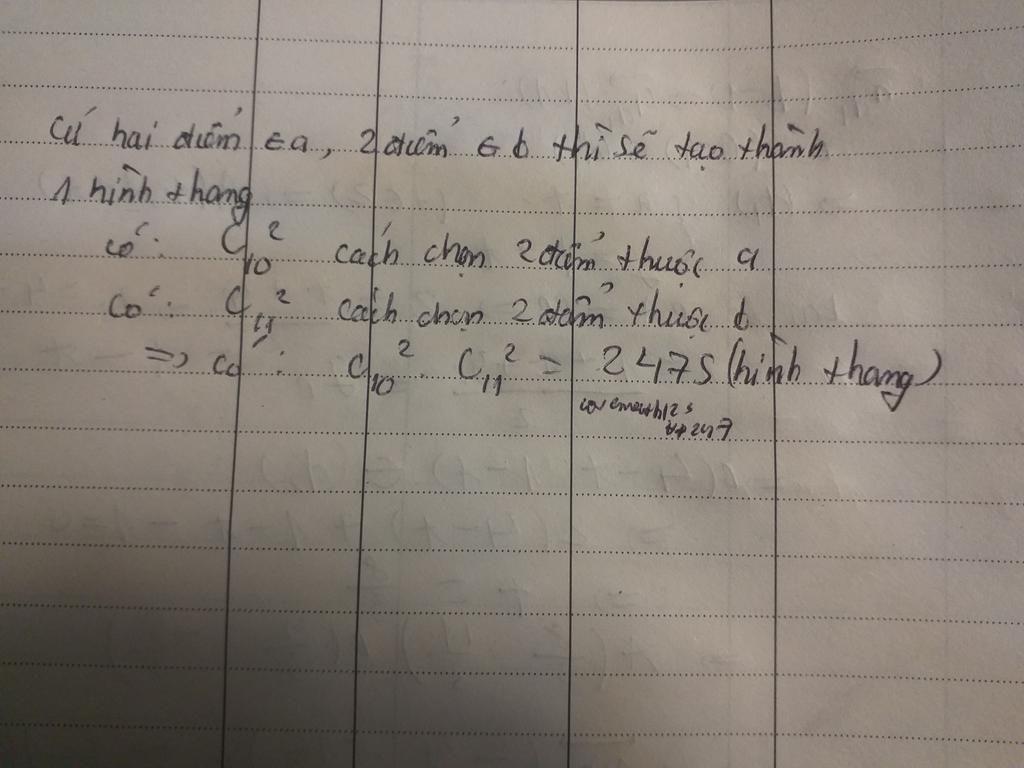 Cứ hai điểm ∈ a, 2 điểm ∈ b thì sẽ tạo thành
1 hình thang
có: C₁₀² cách chọn 2 điểm thuộc a
có: C₁₁² cách chọn 2 điểm thuộc b
=> có: C₁₀² . C₁₁² = 2475 (hình thang)